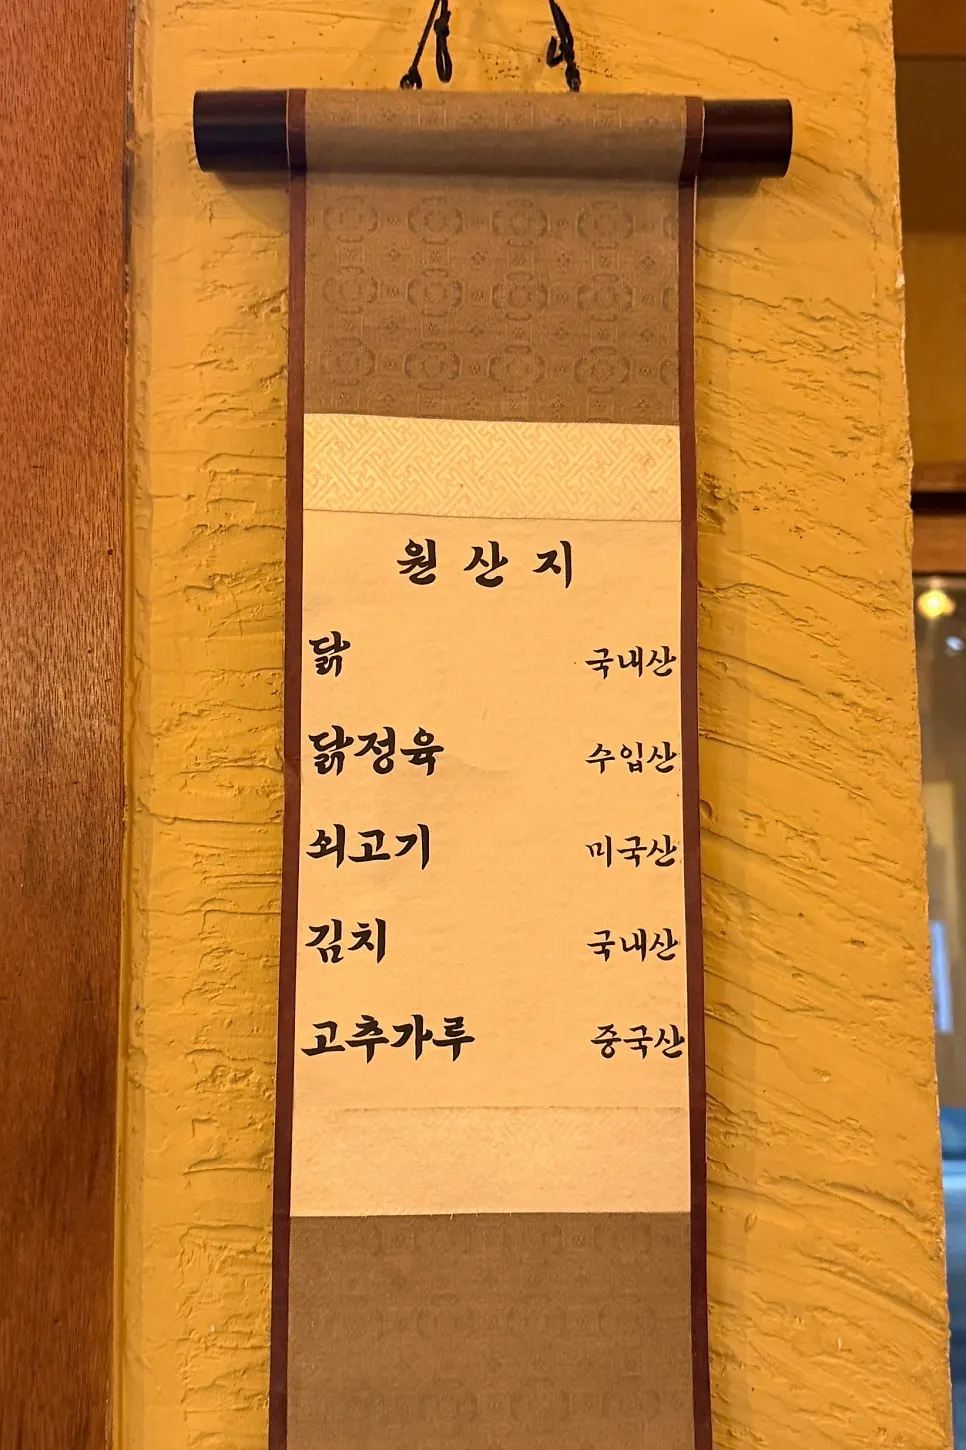 원산지
닭 국내산
닭정육 수입산
쇠고기 미국산
김치 국내산
고추가루 중국산